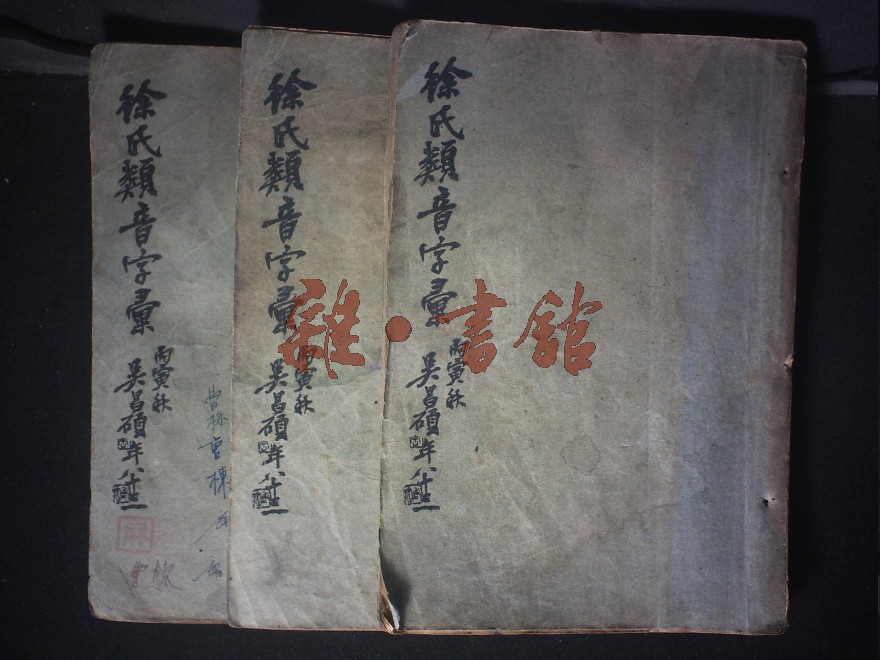 徐氏類音字彙
丙寅秋
吳昌碩年八十三
徐氏類音字彙
丙寅秋
吳昌碩年八十三
徐氏類音字彙
丙寅秋
吳昌碩年八十三
雜·書館